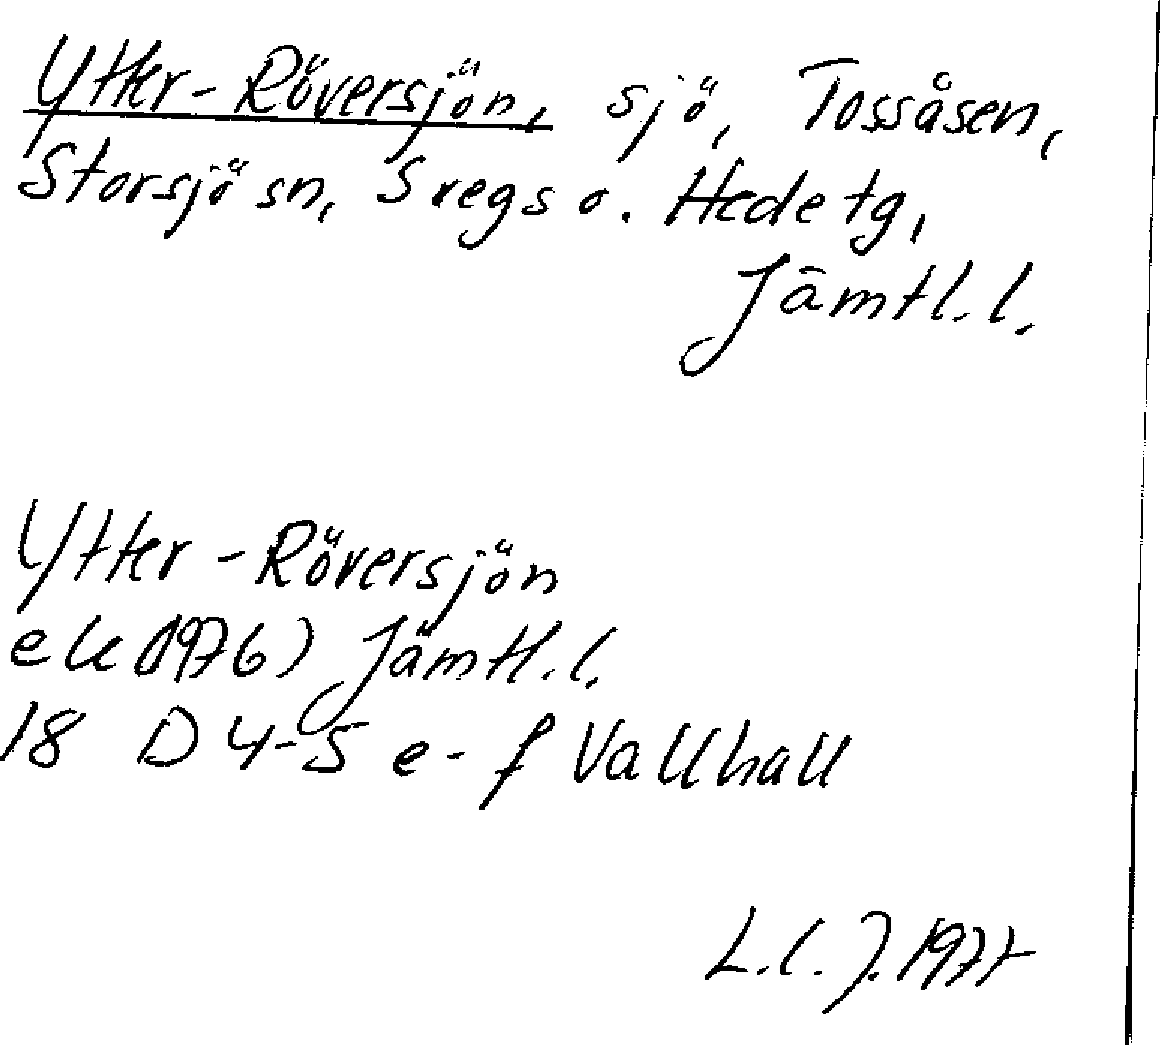 Ytter-Röversjön, sjö, Tossåsen,
Storsjö sn, Svegs o. Hede tg,
Jämtl. l.
Ytter-Röversjön
ek (1976) Jämtl. l.
18 D 4-5 e-f Vallhall
L. l. J. 1977